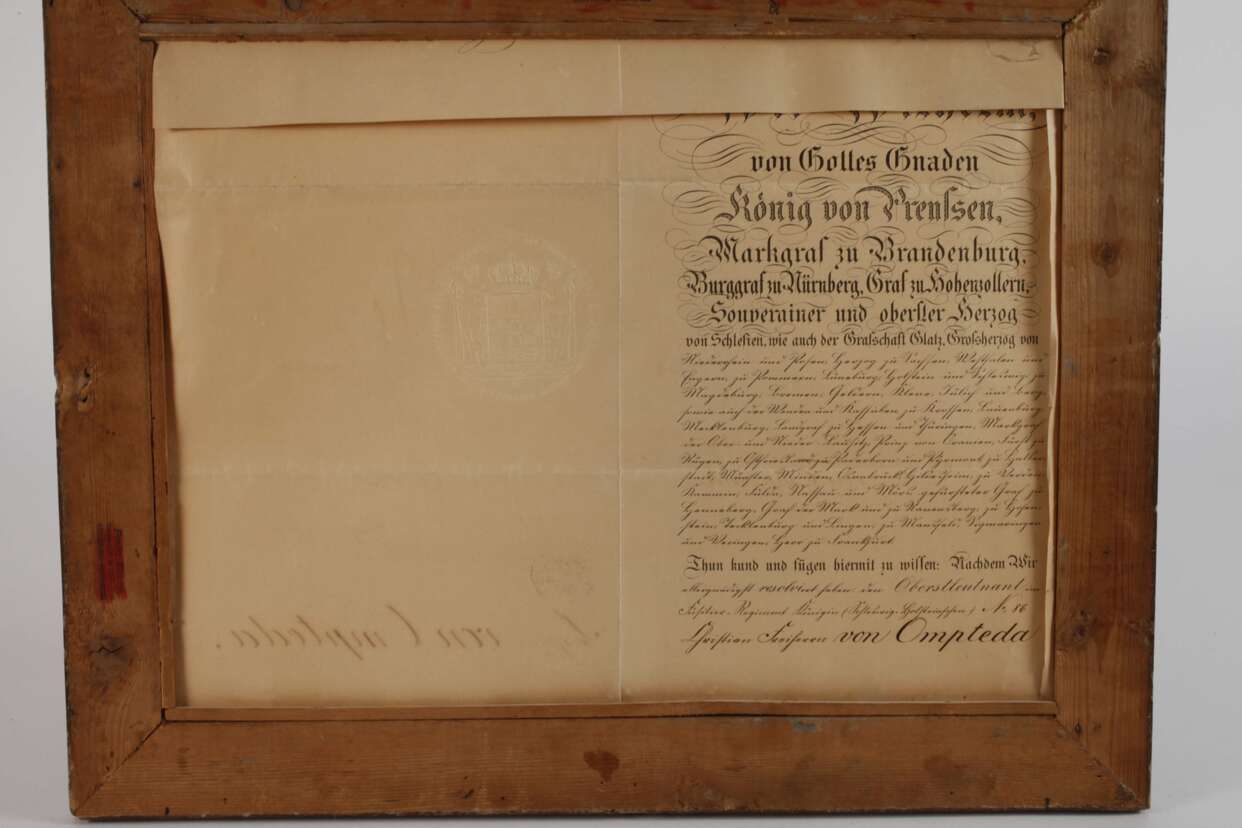 Wir Wilhelm,
von Gottes Gnaden
König von Preuſsen,
Markgraf zu Brandenburg,
Burggraf zu Nürnberg, Graf zu Hohenzollern,
Souverainer und oberſter Herzog
von Schleſien, wie auch der Grafſchaft Glatz, Groſsherzog von
Niederrhein und Poſen, Herzog zu Sachſen, Weſtphalen und
Engern, zu Pommern, Lüneburg, Holſtein und Schleswig, zu
Magdeburg, Bremen, Geldern, Kleve, Jülich und Berg,
ſowie auch der Wenden und Kaſſuben, zu Kroſſen, Lauenburg,
Mecklenburg, Landgraf zu Heſſen und Thüringen, Markgraf
der Ober- und Nieder-Lauſitz, Prinz von Oranien, Fürſt zu
Rügen, zu Oſtfriesland, zu Paderborn und Pyrmont, zu Halber-
ſtadt, Münſter, Minden, Osnabrück, Hildesheim, zu Verden,
Kammin, Fulda, Naſſau und Mörs, gefürſteter Graf zu
Henneberg, Graf der Mark und zu Ravensberg, zu Hohen-
ſtein, Tecklenburg und Lingen, zu Mansfeld, Sigmaringen
und Veringen, Herr zu Frankfurt.
Thun kund und fügen hiermit zu wiſſen: Nachdem Wir
allergnädigſt resolviret haben, den Oberstleutnant im
Füsilier-Regiment Königin (Schleswig-Holsteinschen) Nr. 86
Christian Freiherrn von Ompteda